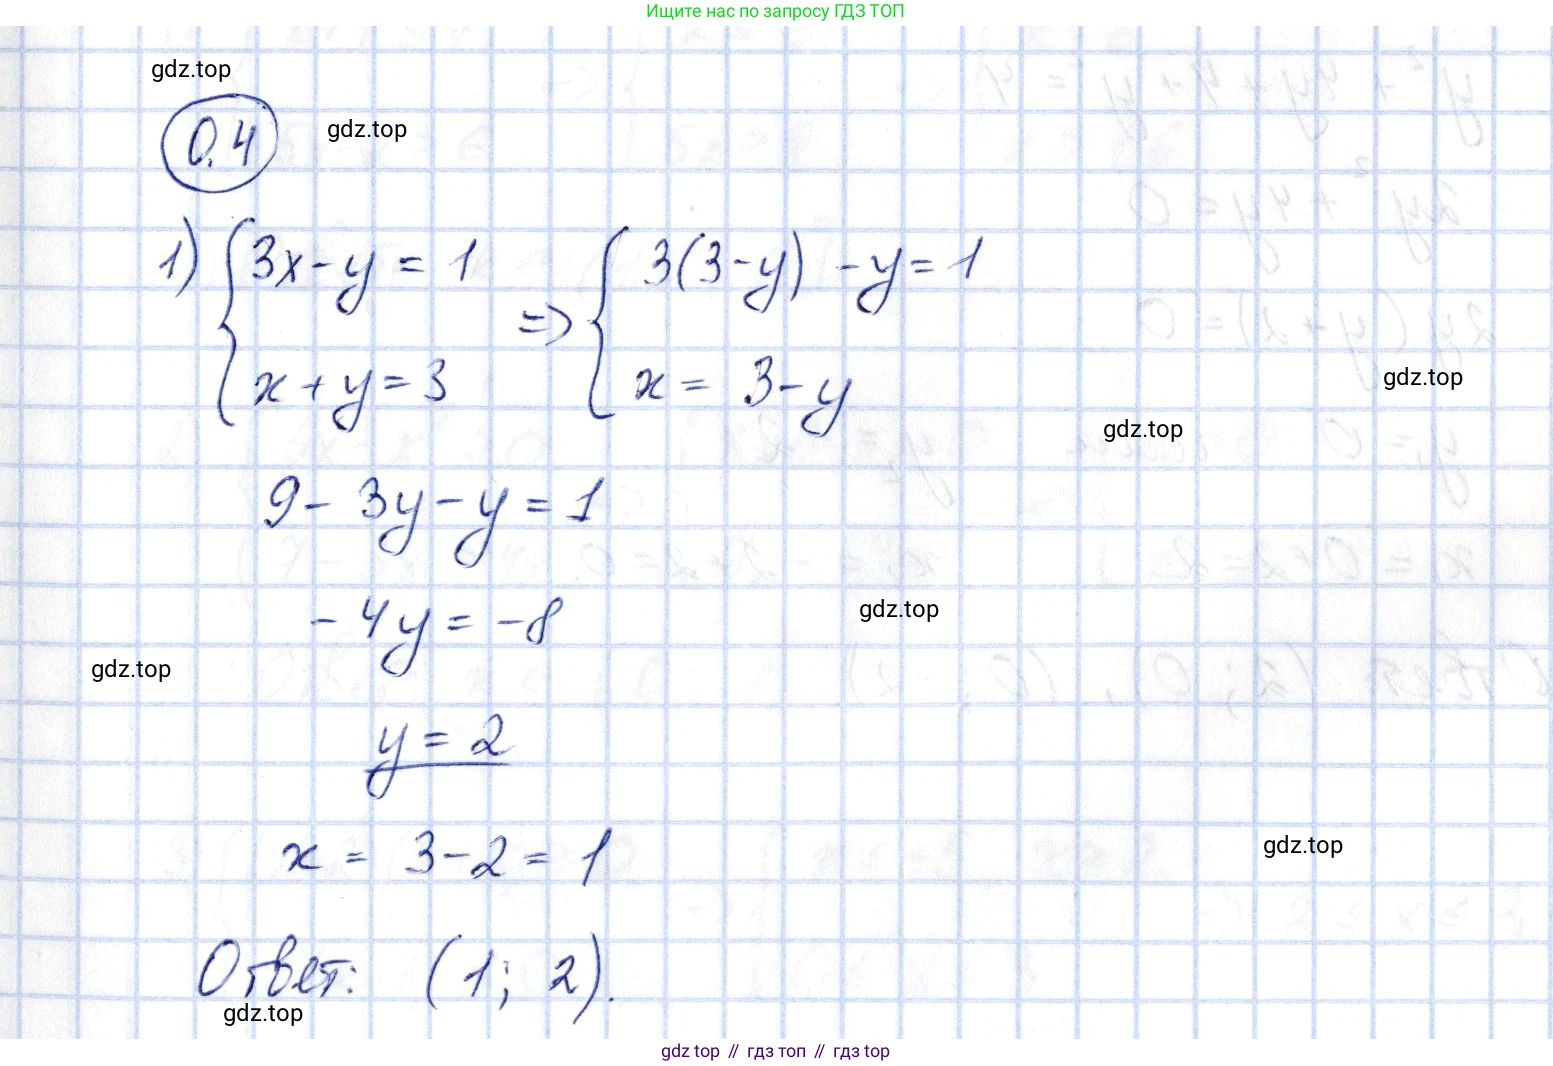 Ищите нас по запросу ГДЗ ТОП
gdz.top
0.4
gdz.top
1) { 3x - y = 1 => { 3(3 - y) - y = 1
x + y = 3 x = 3 - y
gdz.top
gdz.top
9 - 3y - y = 1
- 4y = -8
gdz.top
gdz.top
y = 2
x = 3 - 2 = 1
gdz.top
Ответ: (1; 2).
gdz.top
gdz top // гдз топ // гдз top